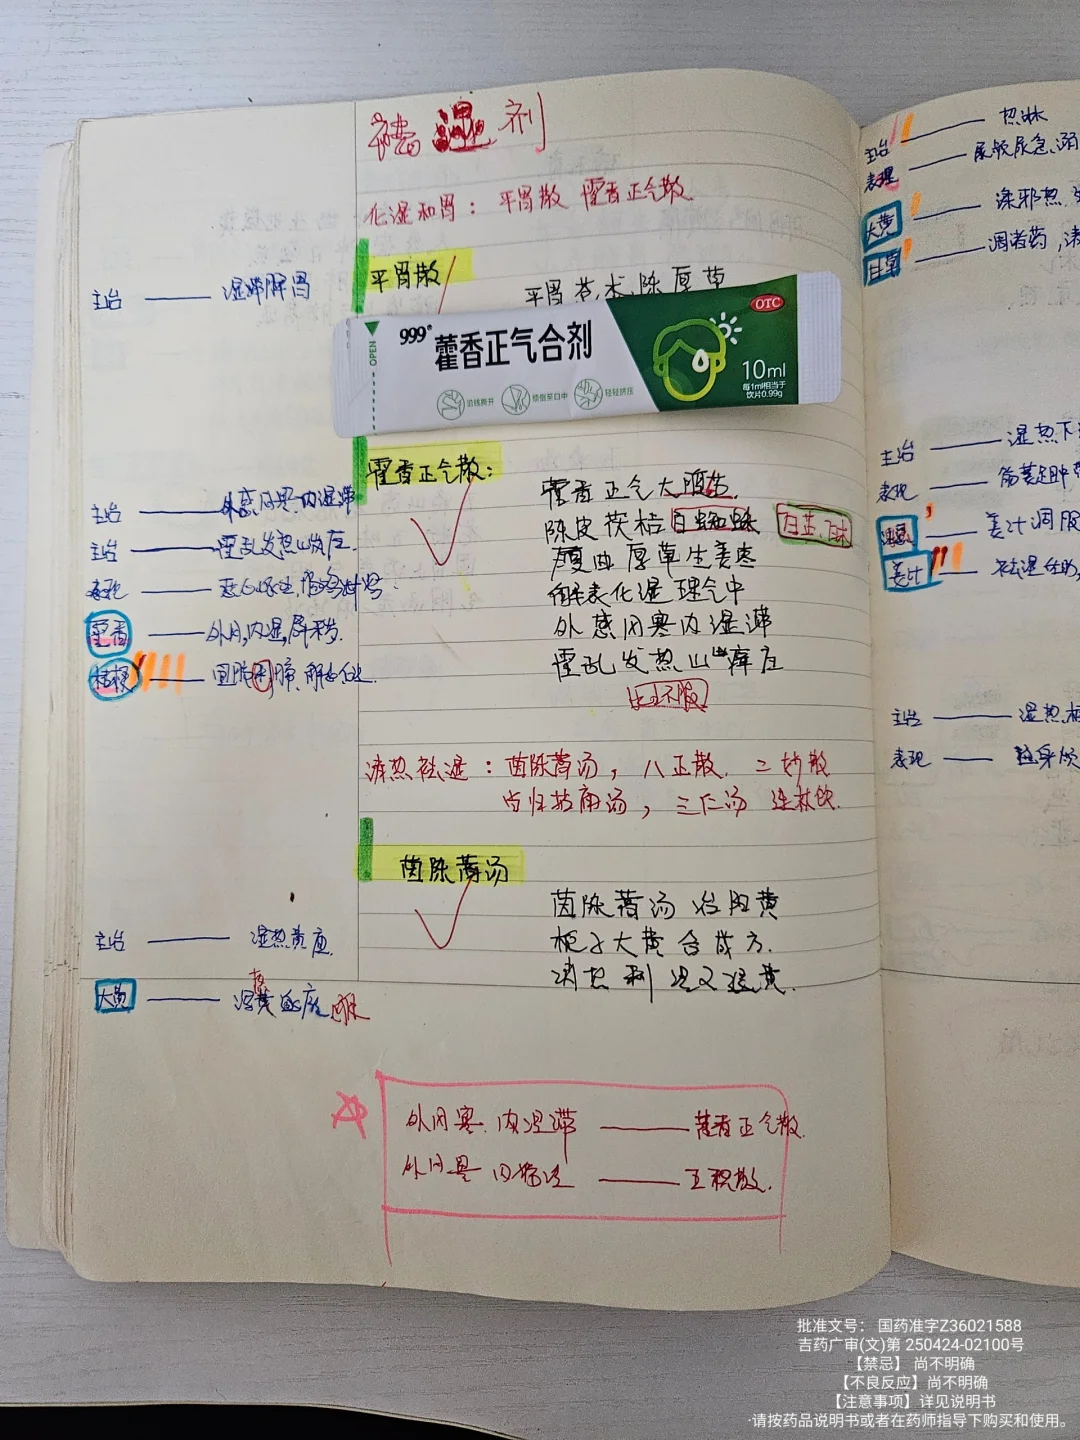 祛湿剂
化湿和胃：平胃散 藿香正气散
平胃散
主治 湿滞脾胃
平胃苍术陈厚草
OPEN
999®
藿香正气合剂
OTC
10ml
每1ml相当于
饮片0.99g
沿线撕开
倾倒至口中
轻轻挤压
藿香正气散：
藿香正气大腹苏
陈皮茯桔白蜘蛛
白芷
夏曲厚草生姜枣
解表化湿理气中
外感风寒内湿滞
霍乱发热山瘴症
水土不服
主治 外感风寒内湿滞
主治 霍乱发热山瘴症
表现
藿香 外风,内湿,辟秽
桔梗
清热祛湿：茵陈蒿汤，八正散．二妙散
当归拈痛汤，三仁汤 连朴饮
茵陈蒿汤
茵陈蒿汤治阳黄
栀子大黄合成方．
清热利湿又退黄．
主治 湿热黄疸
大黄
外风寒．内湿滞 藿香正气散
五积散．
主治 热淋
表现 尿频尿急
大黄
甘草 调诸药
主治 湿热下
表现
姜汁调服
姜汁
主治 湿热
表现
批准文号： 国药准字Z36021588
吉药广审(文)第 250424-02100号
【禁忌】 尚不明确
【不良反应】尚不明确
【注意事项】详见说明书
·请按药品说明书或者在药师指导下购买和使用。